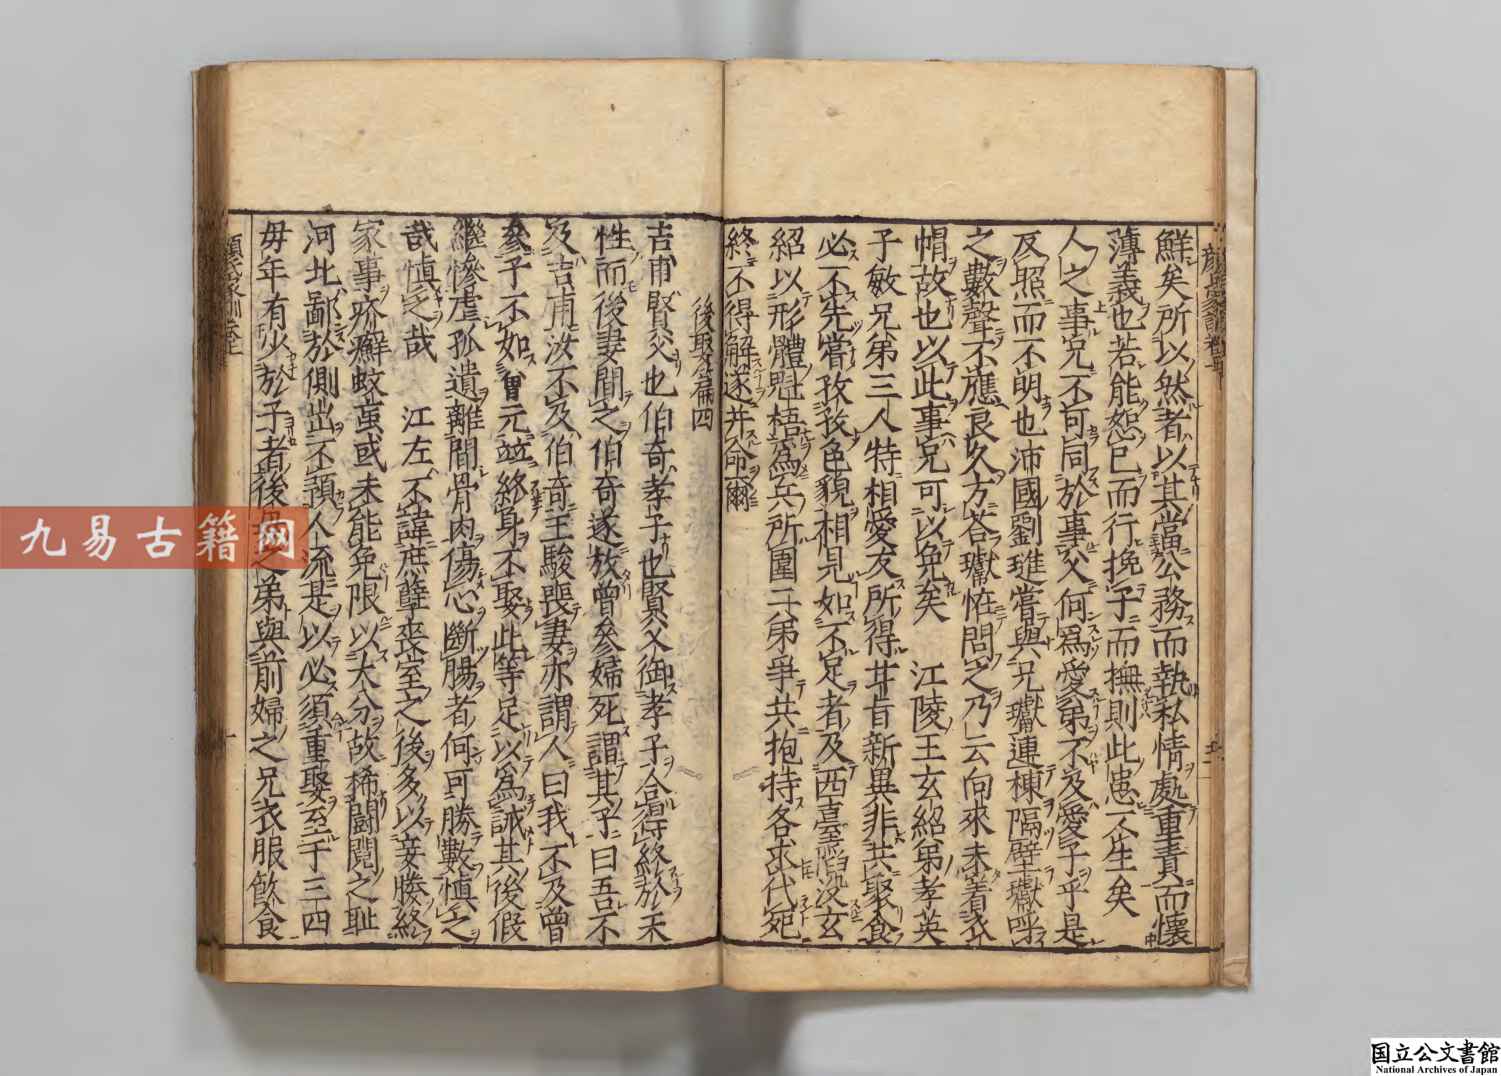 鮮矣所以然者以其當公務而執私情處重責而懷
薄義也若能恕己而行挽子而撫則此患不生矣
人之事兄不可同於事父何爲愛弟不及愛子乎是
反照而不明也沛國劉璡嘗與兄瓛連棟隔壁瓛呼
之數聲不應良久方荅瓛恠問之乃云向來未着衣
帽故也以此事兄可以免矣　江陵王玄紹弟孝英
子敏兄弟三人特相愛友所得甘旨新異非共聚食
必不先嘗孜孜色貌相見如不足者及西臺陷没玄
紹以形體魁梧爲兵所圍二弟爭共抱持各求代死
終不得解遂并命爾
後娶篇四
吉甫賢父也伯奇孝子也賢父御孝子合得終於天
性而後妻間之伯奇遂放曾參婦死謂其子曰吾不
及吉甫汝不及伯奇王駿喪妻亦謂人曰我不及曾
參子不如曾元並終身不娶此等足以爲誡其後假
繼慘虐孤遺離間骨肉傷心斷腸者何可勝數慎之
哉慎之哉　江左不諱庶孽喪室之後多以妾媵終
家事疥癬蚊䖟或未能免限以大分故稀鬪鬩之耻
河北鄙於側出不預人流是以必須重娶至于三四
毋年有少於子者後之弟與前婦之兄衣服飲食
顔氏家訓卷上
九易古籍网
国立公文書館
National Archives of Japan